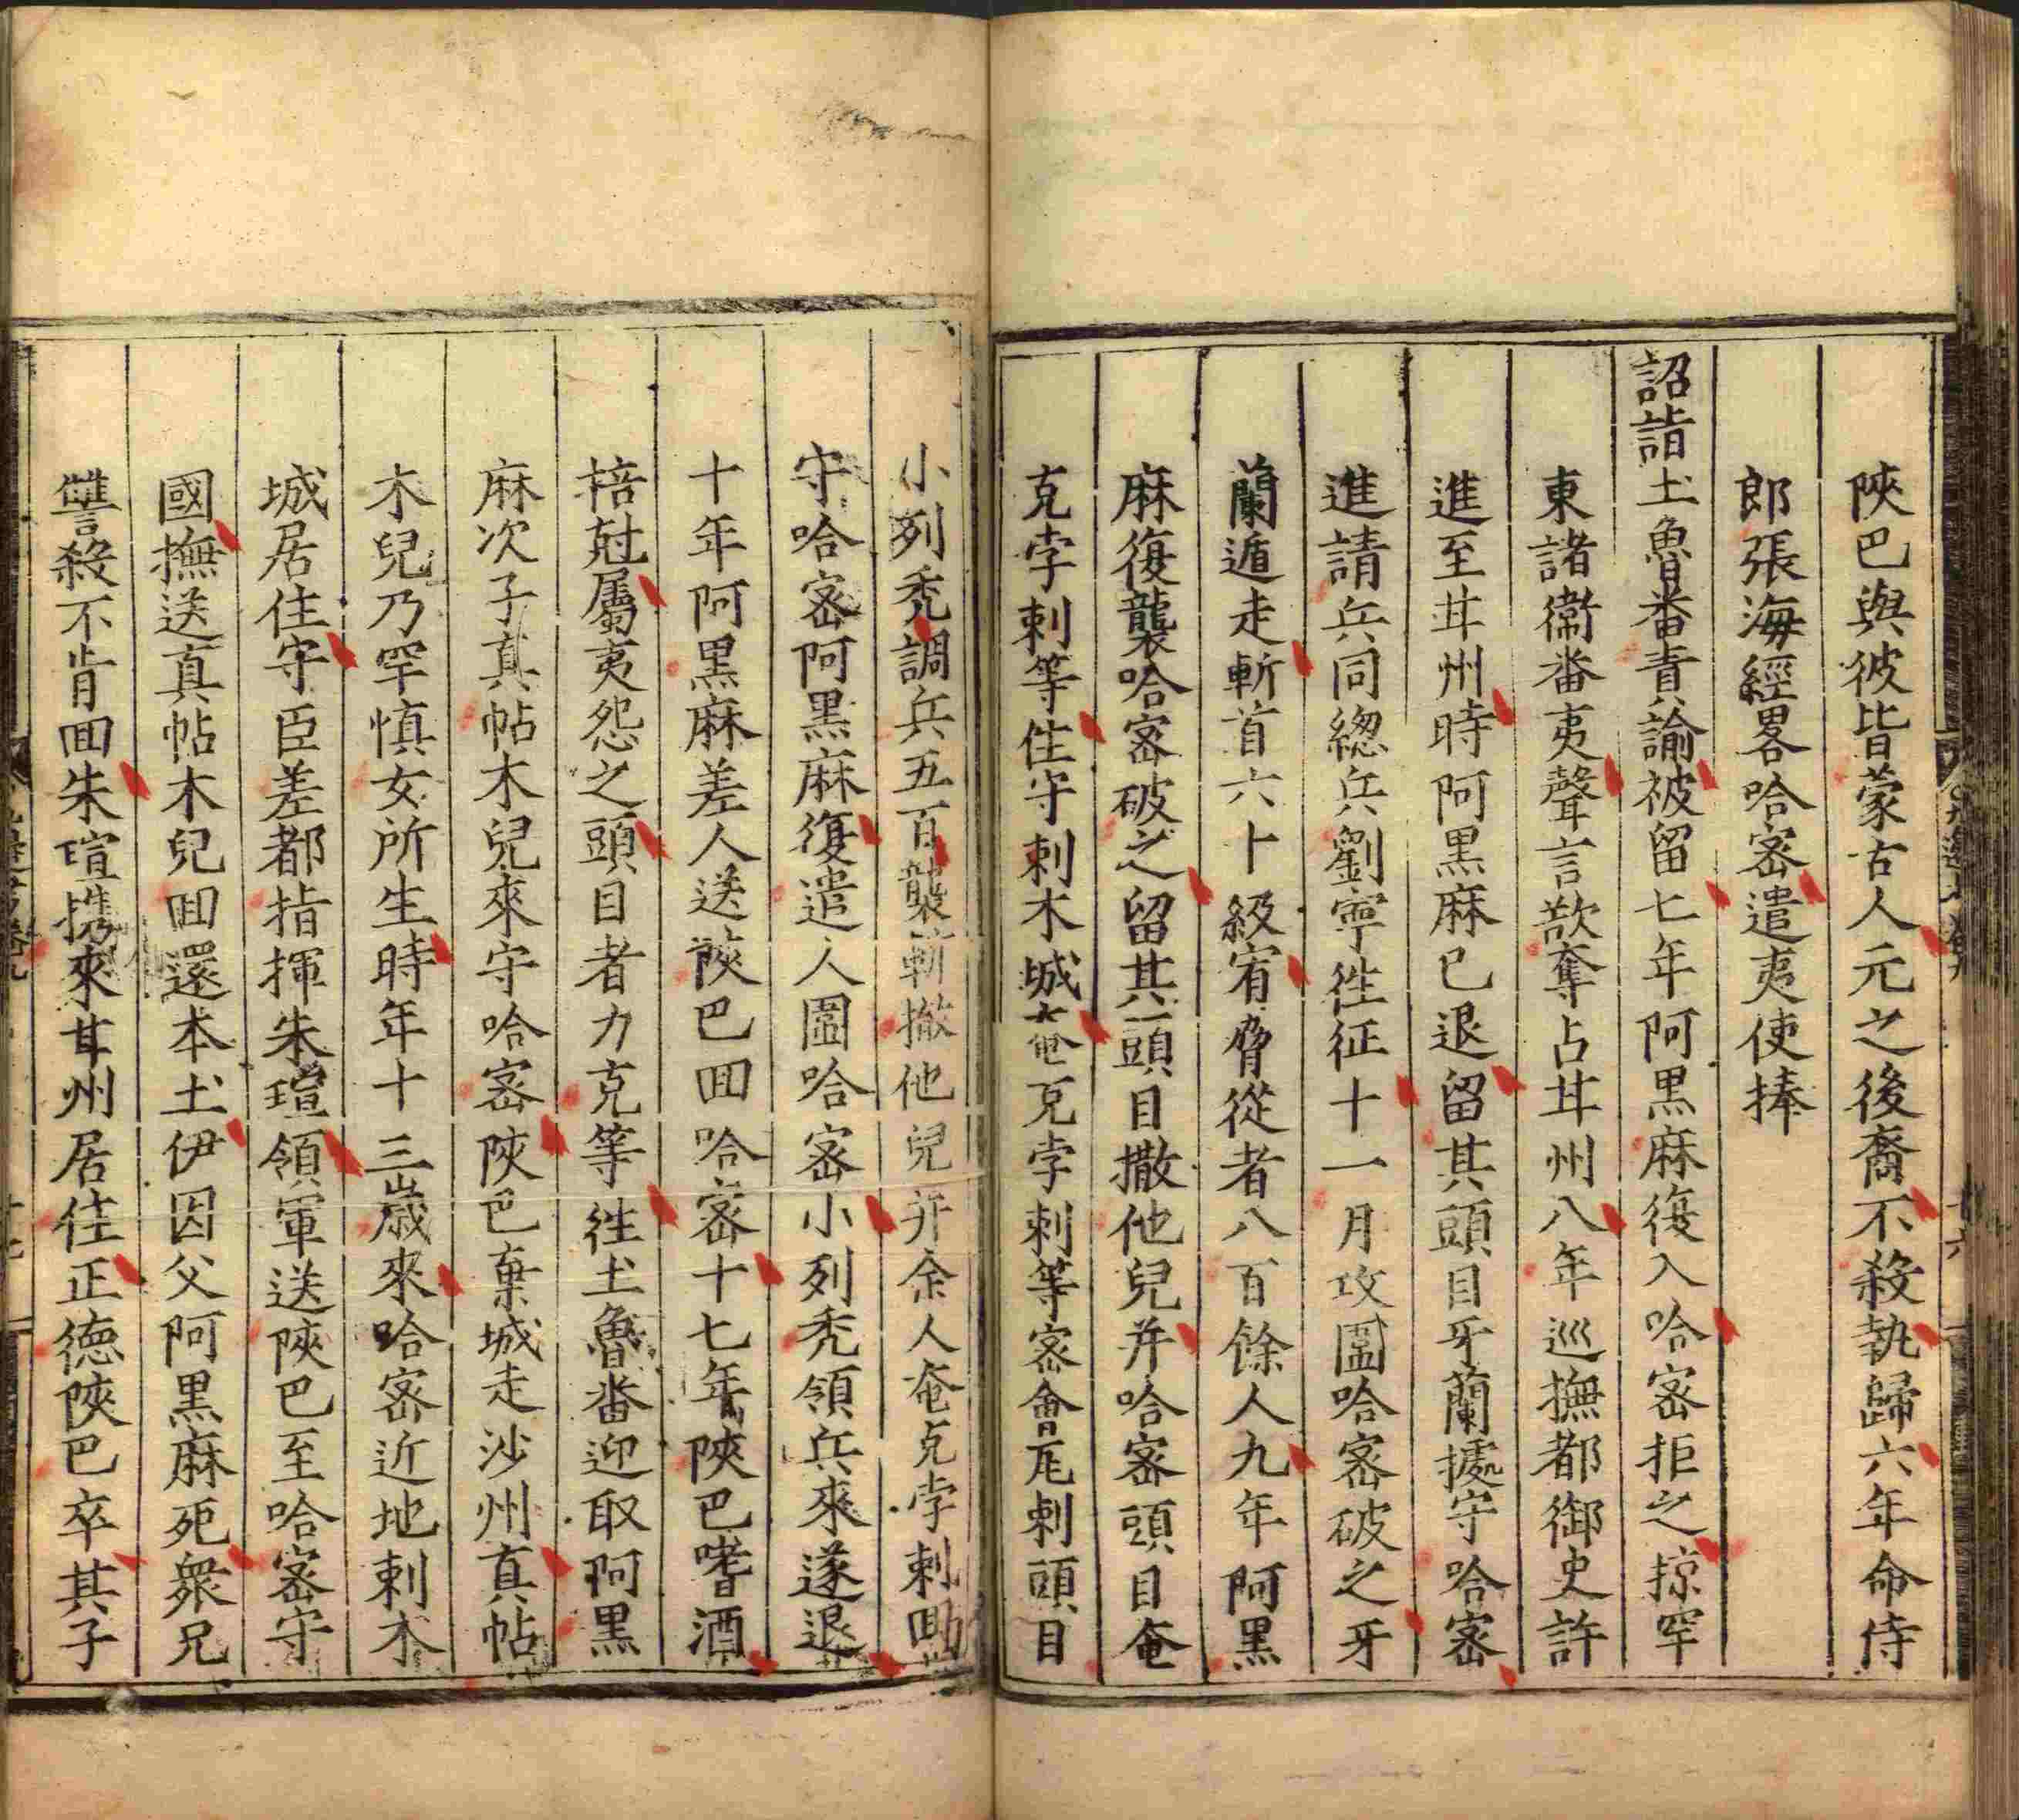 陜巴與彼皆蒙古人元之後裔不殺執歸六年命侍
郎張海經畧哈宻遣夷使捧
詔詣土魯番責諭被留七年阿黒麻復入哈宻拒之掠罕
東諸衛番夷聲言欲奪占甘州八年巡撫都御史許
進至甘州時阿黒麻已退留其頭目牙蘭據守哈宻
進請兵同緫兵劉寧徃征十一月攻圍哈宻破之牙
蘭遁走斬首六十級宥脅從者八百餘人九年阿黒
麻復襲哈宻破之留其頭目撒他兒并哈宻頭目奄
克孛剌等住守剌木城奄克孛剌等宻會瓦剌頭目
小列禿調兵五百襲斬撒他兒并余人奄克孛剌囬
守哈宻阿黒麻復遣人圍哈宻小列禿領兵來遂退
十年阿黒麻差人送陜巴囬哈宻十七年陜巴嗜酒
掊尅屬夷怨之頭目者力克等徃土魯畨迎取阿黒
麻次子真帖木兒來守哈宻陜巴棄城走沙州真帖
木兒乃罕慎女所生時年十三歲來哈宻近地剌木
城居住守臣差都指揮朱瑄領軍送陜巴至哈宻守
國撫送真帖木兒囬還本土伊因父阿黒麻死衆兄
讐殺不肯囬朱瑄携來甘州居住正德陜巴卒其子